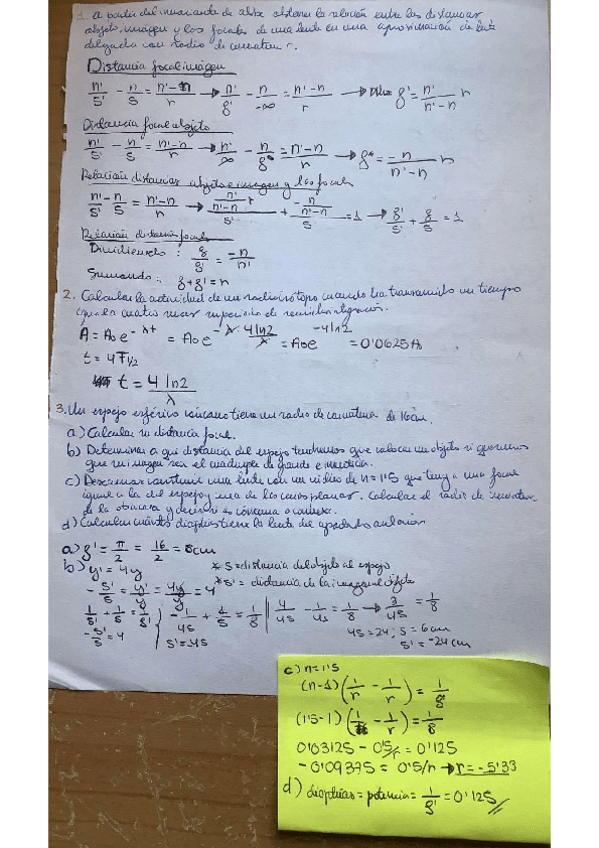 1. A partir del invariante de Abbe obtener la relación entre las distancias
objeto, imagen y las focales de una lente en una aproximación de lente
delgada con radio de curvatura r.
Distancia focal imagen
n'/s' - n/s = n'-n/r → n'/f' - n/-∞ = n'-n/r → f' = n'/n'-n r
Distancia focal objeto
n'/s' - n/s = n'-n/r → n'/∞ - n/f = n'-n/r → f = -n/n'-n r
Relación distancias objeto e imagen y las focales
n'/s' - n/s = n'-n/r → f'/s' + f/s = 1
Relación distancia focales
Dividiendo: f/f' = -n/n'
Sumando: f+f' = r
2. Calcular la actividad de un radioisótopo cuando ha transcurrido un tiempo
igual a cuatro veces su periodo de semidesintegración.
A = A₀e^-λt = A₀e^-λ·4ln2/λ = A₀e^-4ln2 = 0'0625A₀
t = 4T1/2
t = 4 ln2/λ
3. Un espejo esférico cóncavo tiene un radio de curvatura de 16cm.
a) Calcular su distancia focal.
b) Determina a qué distancia del espejo tendremos que colocar un objeto si queremos
que su imagen sea el cuádruple de grande e invertida.
c) Deseamos construir una lente con un índice de n=1'5 que tenga una focal
igual a la del espejo y una de las caras planas. Calcular el radio de curvatura
de la otra cara y decir si es cóncava o convexa.
d) Calcular cuántas dioptrías tiene la lente del apartado anterior
a) f' = π/2 = 16/2 = 8cm
b) y' = 4y
* s = distancia del objeto al espejo
- s'/s = y'/y = 4y/y = 4
* s' = distancia de la imagen al objeto
1/s' + 1/s = 1/f'
-1/4s + 1/s = 1/8
4/4s - 1/4s = 1/8 → 3/4s = 1/8
- s'/s = 4
s' = -4s
4s = 24; s = 6cm
s' = -24cm
c) n = 1'5
(n-1)(1/r - 1/r) = 1/f'
(1'5-1)(1/16 - 1/r) = 1/8
0'03125 - 0'5/r = 0'125
-0'09375 = 0'5/r → r = -5'33
d) dioptrías = potencia = 1/f' = 0'125